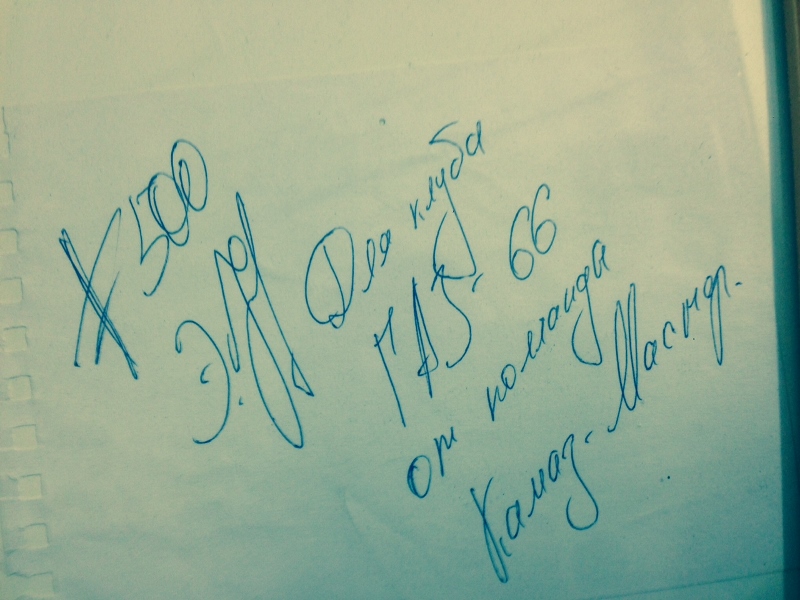 500
Для клуба
ГАЗ-66
от команды
Камаз-Мастер.